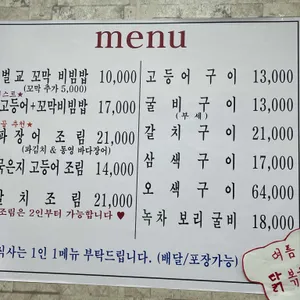 menu
벌교 꼬막 비빔밥 10,000
(꼬막 추가 5,000)
고등어+꼬막비빔밥 17,000
추천★
파장어 조림 21,000
(파김치 & 통영 바다장어)
묵은지 고등어 조림 14,000
갈치 조림 21,000
조림은 2인부터 가능합니다♥
고등어 구이 13,000
굴비 구이 13,000
(부세)
갈치 구이 21,000
삼색 구이 17,000
오색 구이 64,000
녹차 보리굴비 18,000
식사는 1인 1메뉴 부탁드립니다. (배달/포장가능)
여름
닭